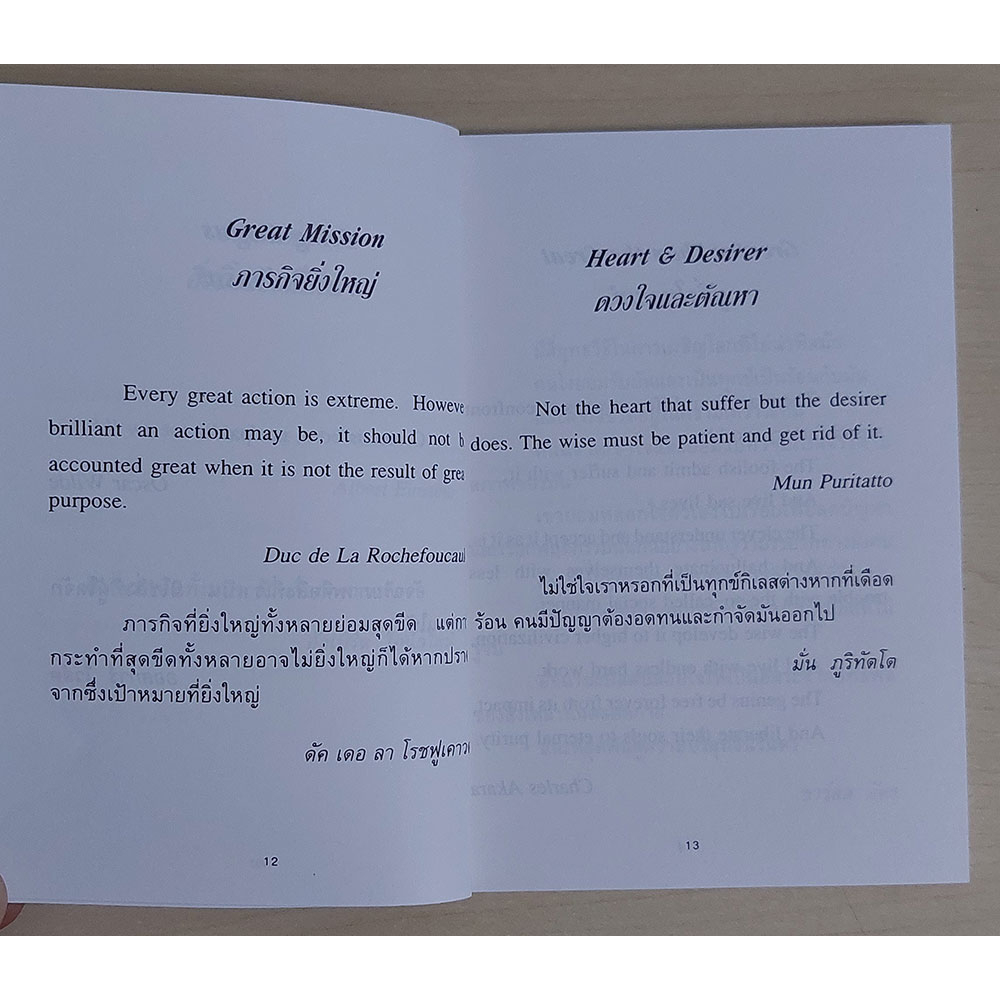 Great Mission
ภารกิจยิ่งใหญ่
Every great action is extreme. Howeve
brilliant an action may be, it should not b
accounted great when it is not the result of grea
purpose.
Duc de La Rochefoucaul
ภารกิจที่ยิ่งใหญ่ทั้งหลายย่อมสุดขีด แต่กา
กระทำที่สุดขีดทั้งหลายอาจไม่ยิ่งใหญ่ก็ได้หากปรา
จากซึ่งเป้าหมายที่ยิ่งใหญ่
ดัค เดอ ลา โรชฟูเคาว
12
Heart & Desirer
ดวงใจและตัณหา
Not the heart that suffer but the desirer
does. The wise must be patient and get rid of it.
Mun Puritatto
ไม่ใช่ใจเราหรอกที่เป็นทุกข์กิเลสต่างหากที่เดือด
ร้อน คนมีปัญญาต้องอดทนและกำจัดมันออกไป
มั่น ภูริทัตโต
13